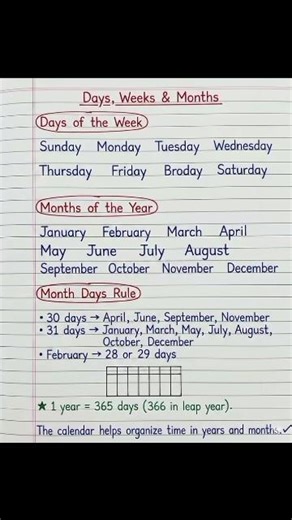 Days, Weeks & Months
Days of the Week
Sunday Monday Tuesday Wednesday
Thursday Friday Broday Saturday
Months of the Year
January February March April
May June July August
September October November December
Month Days Rule
• 30 days → April, June, September, November
• 31 days → January, March, May, July, August,
October, December
• February → 28 or 29 days
★ 1 year = 365 days (366 in leap year).
The calendar helps organize time in years and months. ✓